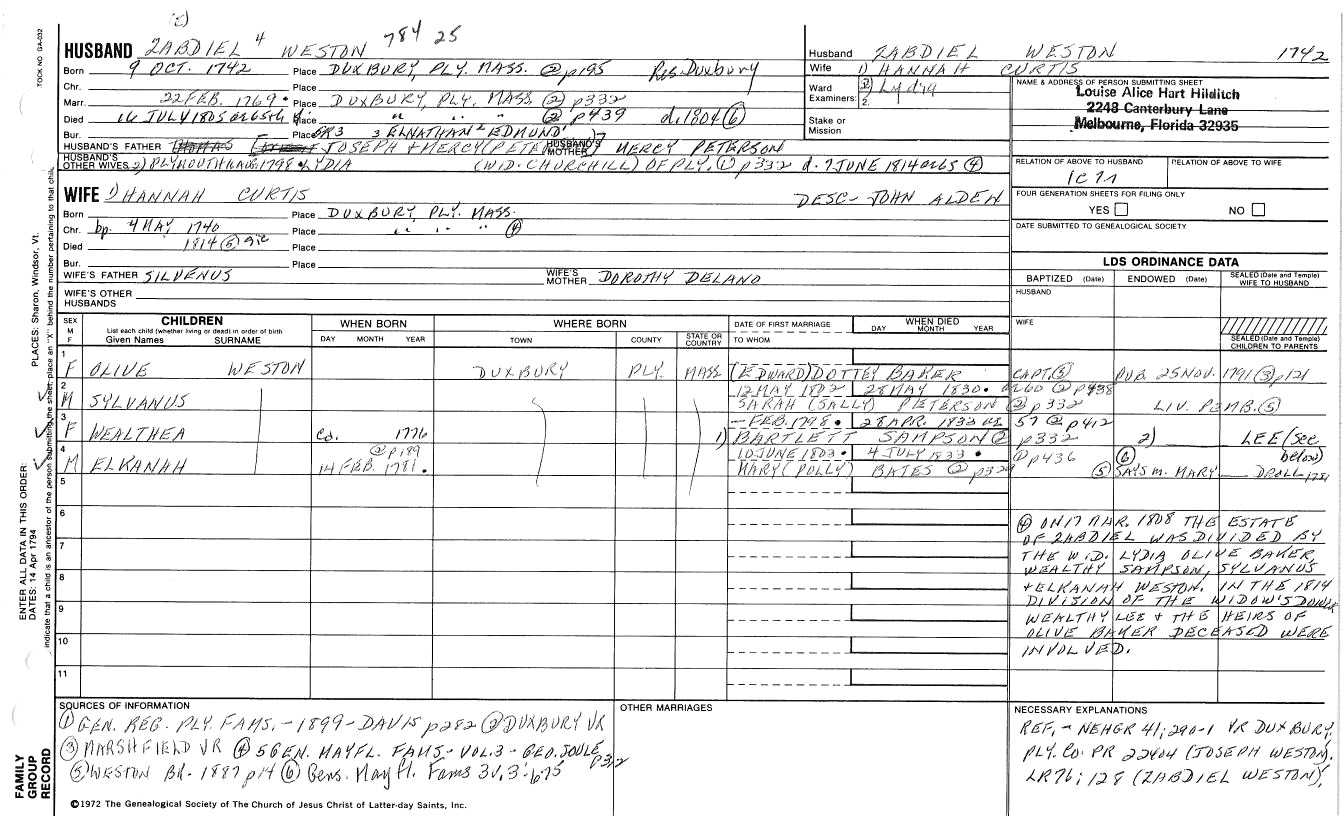 (5)
TOCK NO GA-032
HUSBAND ZABDIEL 4 WESTON 784 25
Born 9 OCT. 1742 Place DUXBURY, PLY. MASS. ② p195 Res. Duxbury
Chr. Place
Marr. 22 FEB. 1769. Place DUXBURY, PLY. MASS. ② p332
Died 16 JULY 1805 Place " " " ② p439 d. 1804 ⑥
Bur. Place 3 ELNATHAN 2 EDMUND 1
HUSBAND'S FATHER JOSEPH + MERCY HUSBAND'S MOTHER MERCY PETERSON
HUSBAND'S OTHER WIVES 2) PLYMOUTH 1798 LYDIA (WID. CHURCHILL) OF PLY. ① p332 d. 7 JUNE 1814 ae 65 ④
Husband ZABDIEL WESTON 1742
Wife 1) HANNAH CURTIS
Ward 2) Lydia
Examiners: 2.
Stake or
Mission
NAME & ADDRESS OF PERSON SUBMITTING SHEET
Louise Alice Hart Hilditch
2248 Canterbury Lane
Melbourne, Florida 32935
RELATION OF ABOVE TO HUSBAND RELATION OF ABOVE TO WIFE
FOUR GENERATION SHEETS FOR FILING ONLY
YES NO
DATE SUBMITTED TO GENEALOGICAL SOCIETY
WIFE 1) HANNAH CURTIS DESC - JOHN ALDEN
Born Place DUXBURY, PLY. MASS.
Chr. bp. 4 MAY 1740 Place " " " ④
Died 1814 ⑤ Place
Bur. Place
WIFE'S FATHER SILVENUS WIFE'S MOTHER DOROTHY DELANO
WIFE'S OTHER HUSBANDS
LDS ORDINANCE DATA
BAPTIZED (Date) ENDOWED (Date) SEALED (Date and Temple) WIFE TO HUSBAND
HUSBAND
WIFE
SEALED (Date and Temple) CHILDREN TO PARENTS
SEX M F CHILDREN List each child (whether living or dead) in order of birth Given Names SURNAME
WHEN BORN DAY MONTH YEAR
WHERE BORN TOWN COUNTY STATE OR COUNTRY
DATE OF FIRST MARRIAGE TO WHOM
WHEN DIED DAY MONTH YEAR
1 F OLIVE WESTON DUXBURY PLY. MASS (EDWARD) DOTTEY BAKER CAPT. ⑤ PUB. 25 NOV. 1791 ③ p121
2 M SYLVANUS 12 MAY 1802 28 MAY 1830. ae 60 ② p438
SARAH (SALLY) PETERSON ② p332 LIV. PEMB. ⑤
3 F WEALTHEA ca. 1776 — FEB. 1798. 28 APR. 1833 ae 57 ② p412
1) BARTLETT SAMPSON ② p332 2) LEE (see below)
4 M ELKANAH ② p189 14 FEB. 1781. 10 JUNE 1803. 4 JULY 1833. ② p436 ⑥
MARY (POLLY) BATES ② p329 ⑤ SAYS m. MARY
5
6
7
8
9
10
11
④ ON 17 MAR. 1808 THE ESTATE
OF ZABDIEL WAS DIVIDED BY
THE WID. LYDIA OLIVE BAKER,
WEALTHY SAMPSON, SYLVANUS
+ ELKANAH WESTON. IN THE 1814
DIVISION OF THE WIDOW'S DOWER
WEALTHY LEE + THE HEIRS OF
OLIVE BAKER DECEASED WERE
INVOLVED.
SOURCES OF INFORMATION
① GEN. REG. PLY. FAMS. - 1899 - DAVIS p282 ② DUXBURY VR
③ MARSHFIELD VR ④ 5 GEN. MAYFL. FAMS - VOL. 3 - GEO. SOULE p312
⑤ WESTON BK. - 1887 p14 ⑥ Gens. Mayfl. Fams 3V, 3:675
©1972 The Genealogical Society of The Church of Jesus Christ of Latter-day Saints, Inc.
OTHER MARRIAGES
NECESSARY EXPLANATIONS
REF. - NEHGR 41; 290-1 VR DUXBURY,
PLY. CO. PR 22404 (JOSEPH WESTON),
LR 76; 128 (ZABDIEL WESTON),
PLACES: Sharon, Windsor, Vt.
ENTER ALL DATA IN THIS ORDER:
DATES: 14 Apr 1794
FAMILY
GROUP
RECORD